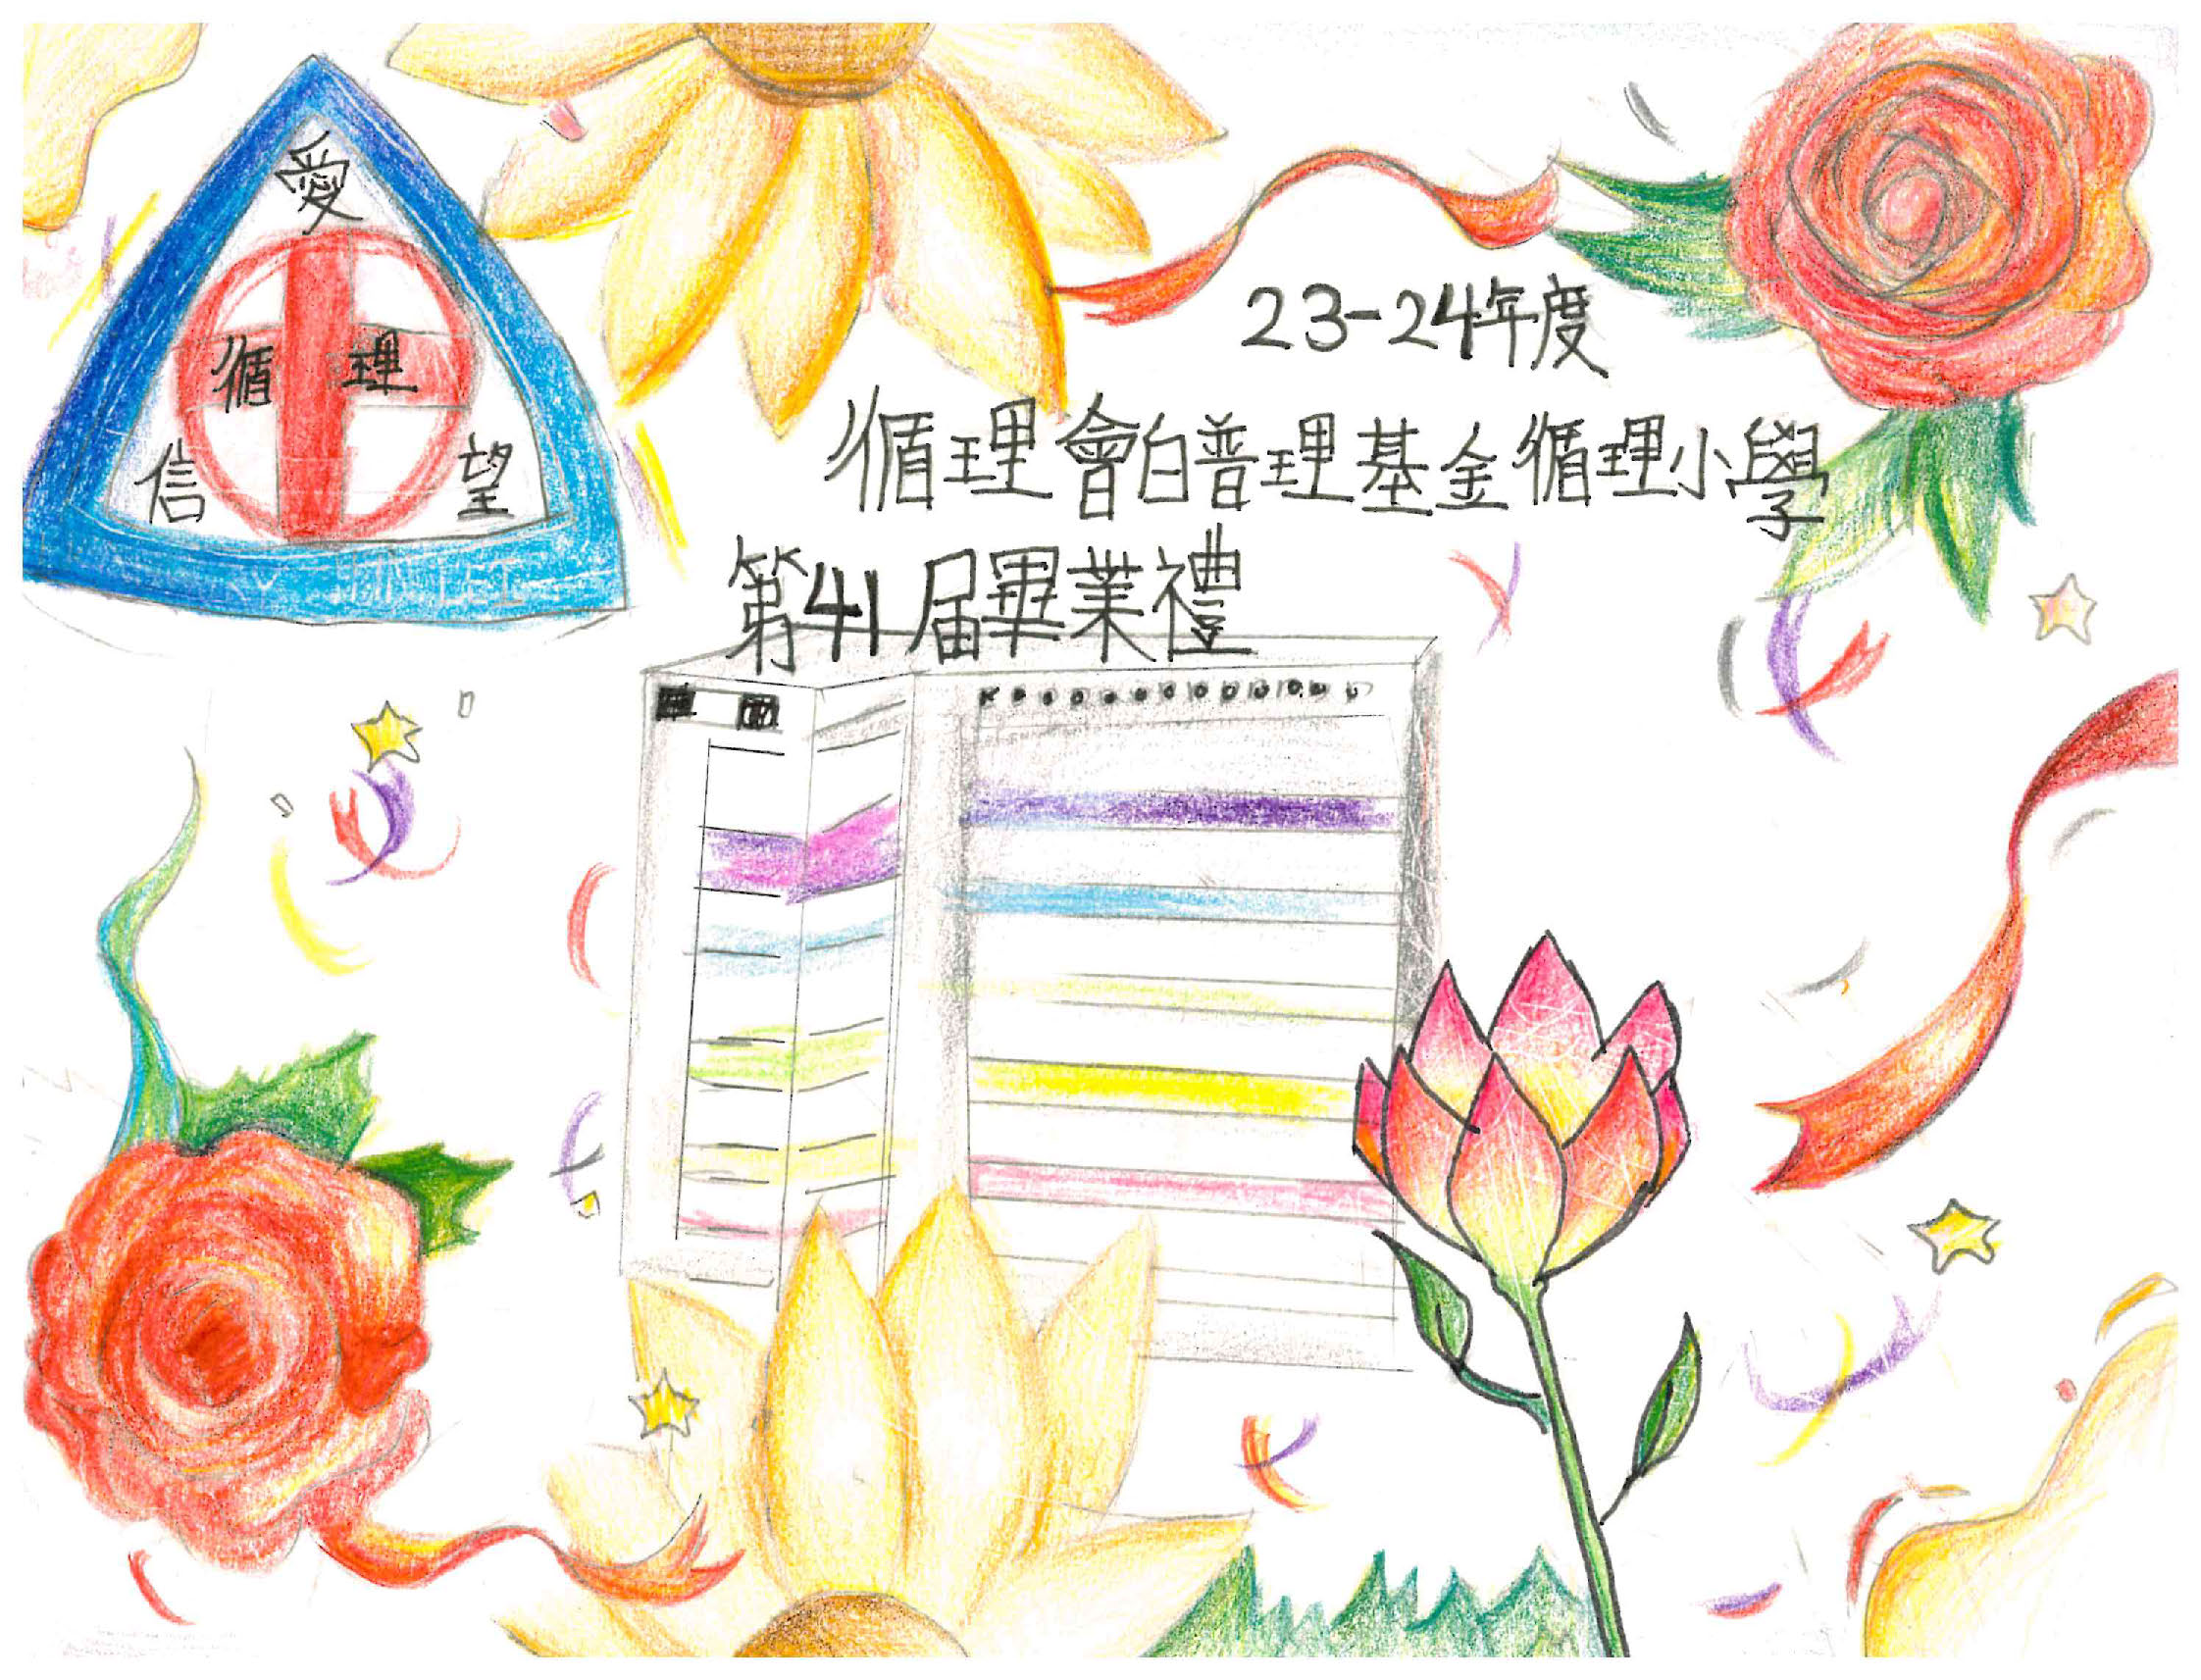 愛
循理
信 望
23-24年度
循理會白普理基金循理小學
第41屆畢業禮